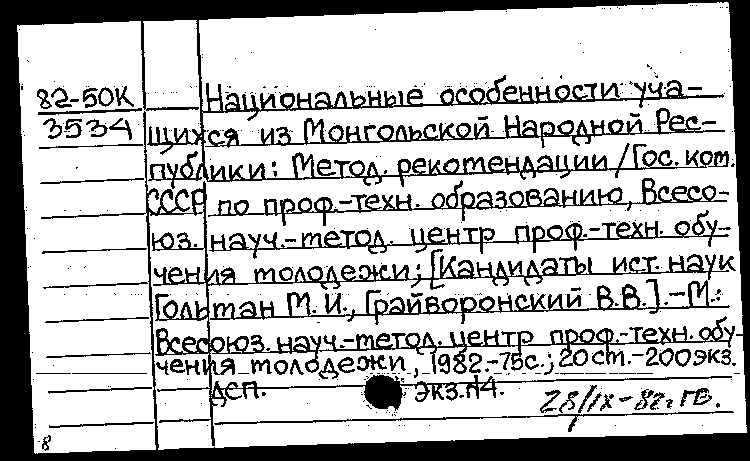 82-50К Национальные особенности уча-
3534 щихся из Монгольской Народной Рес-
публики: Метод. рекомендации/Гос. ком.
СССР по проф.-техн. образованию, Всесо-
юз. науч.-метод. центр проф.-техн. обу-
чения молодежи; [Кандидаты ист. наук
Гольман М. И., Грайворонский В.В.].-М.:
Всесоюз. науч.-метод. центр проф.-техн. обу
чения молодежи, 1982.-75с.; 20 см.-200экз.
ДСП. экз.№4. 28/IX-82г. ГВ.
8